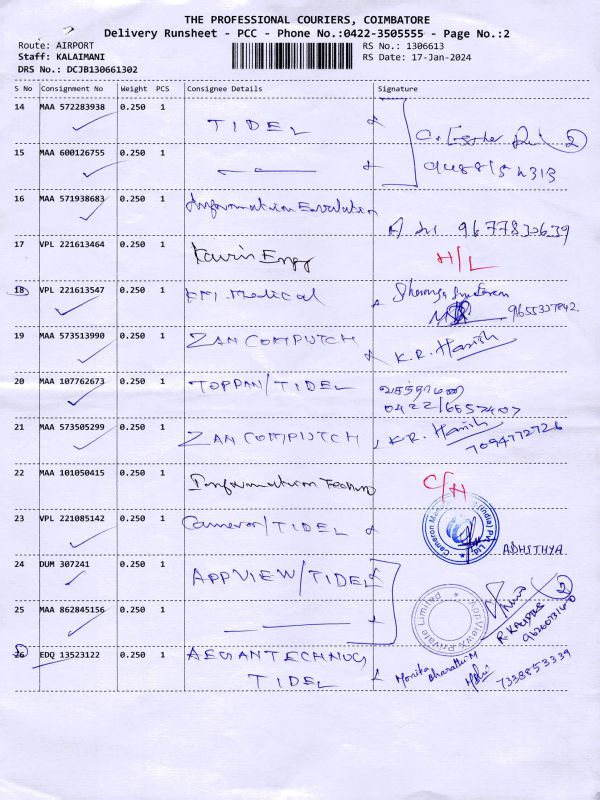 THE PROFESSIONAL COURIERS, COIMBATORE
Delivery Runsheet - PCC - Phone No.:0422-3505555 - Page No.:2
Route: AIRPORT RS No.: 1306613
Staff: KALAIMANI RS Date: 17-Jan-2024
DRS No.: DCJB130661302
S No Consignment No Weight PCS Consignee Details Signature
14 MAA 572283938 0.250 1 TIDEL
15 MAA 600126755 0.250 1
16 MAA 571938683 0.250 1 Information
17 VPL 221613464 0.250 1 H/L
18 VPL 221613547 0.250 1 Medical
19 MAA 573513990 0.250 1 ZAN COMPUTCH K.R. Harish
20 MAA 107762673 0.250 1 TOPPAN/TIDEL வசந்தாமணி
0422/6657407
21 MAA 573505299 0.250 1 ZAN COMPUTCH K.R. Harish
7094772726
22 MAA 101050415 0.250 1 Information Techno C/H
23 VPL 221085142 0.250 1 Cameron/TIDEL ADHITHYA
24 DUM 307241 0.250 1 APPVIEW/TIDEL
25 MAA 862845156 0.250 1
26 EDQ 13523122 0.250 1 Monika
TIDEL Bharathi.M 7338853339